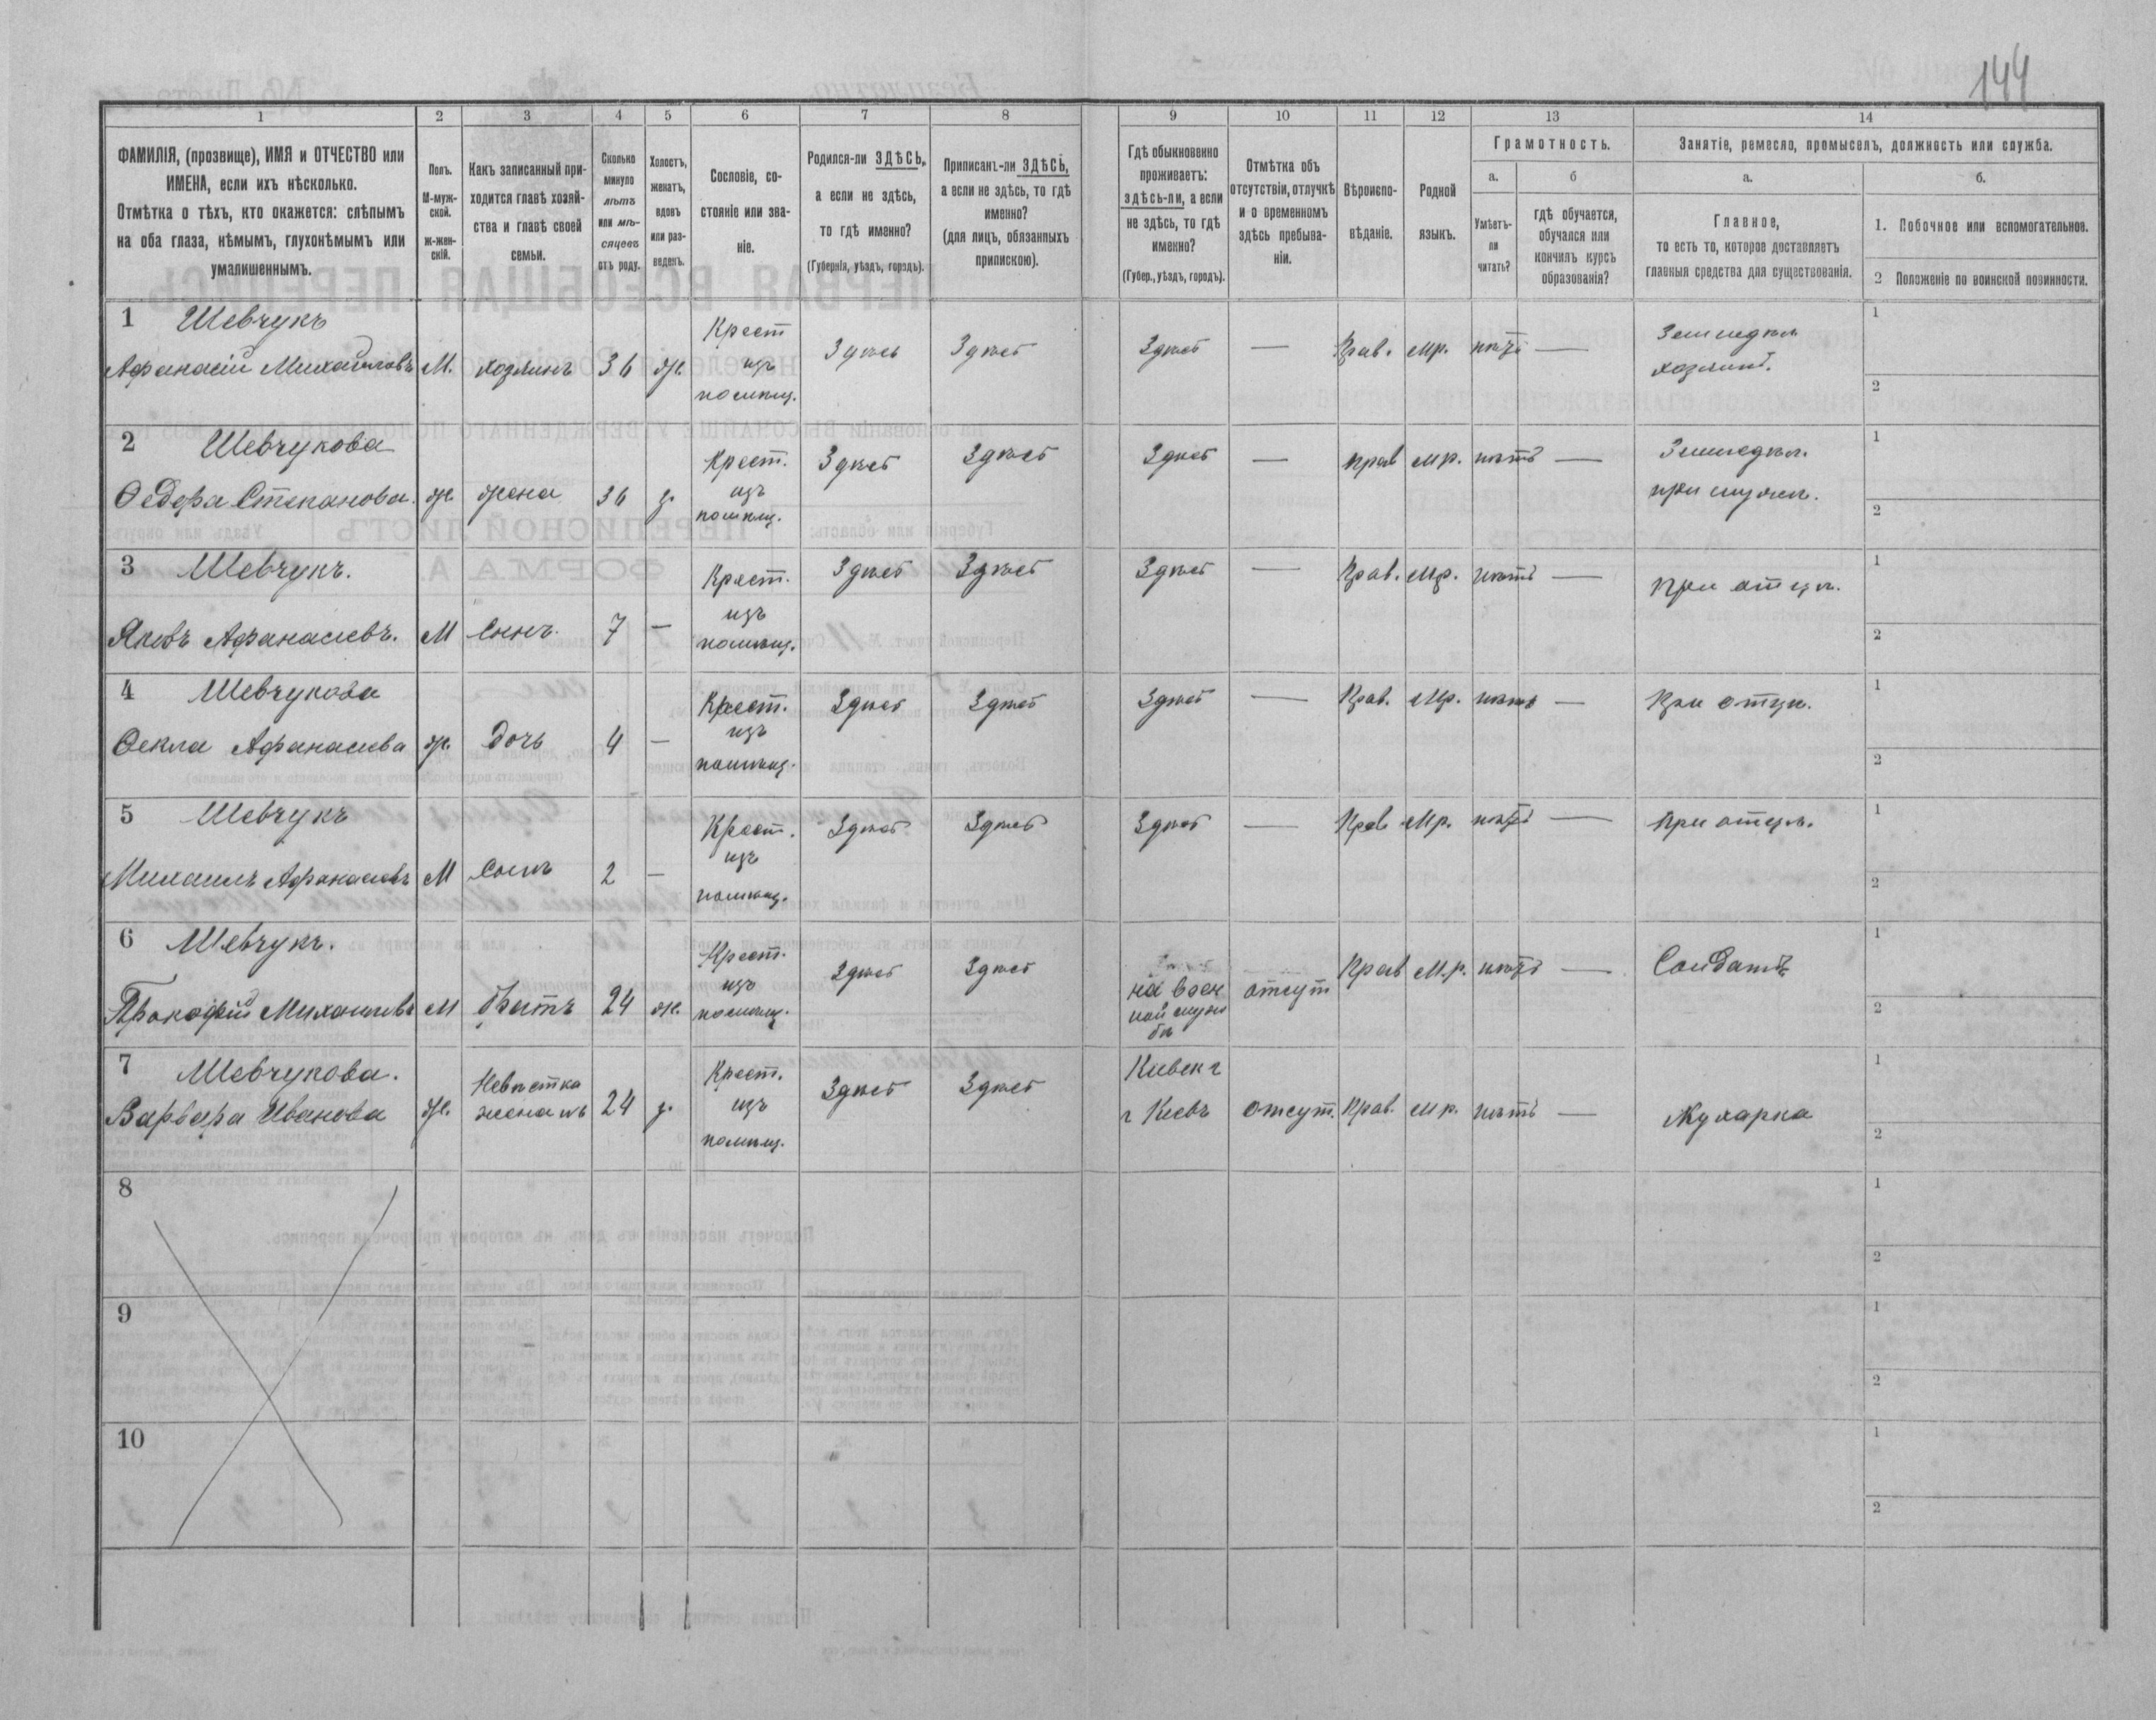 144
1 2 3 4 5 6 7 8 9 10 11 12 13 14
ФАМИЛІЯ, (прозвище), ИМЯ и ОТЧЕСТВО или
ИМЕНА, если ихъ нѣсколько.
Отмѣтка о тѣхъ, кто окажется: слѣпымъ
на оба глаза, нѣмымъ, глухонѣмымъ или
умалишеннымъ.
Полъ.
М-муж-
ской.
ж-жен-
скій.
Какъ записанный при-
ходится главѣ хозяй-
ства и главѣ своей
семьи.
Сколько
минуло
лѣтъ
или мѣ-
сяцевъ
отъ роду.
Холостъ,
женатъ,
вдовъ
или раз-
веденъ.
Сословіе, со-
стояніе или зва-
ніе.
Родился-ли ЗДѢСЬ,
а если не здѣсь,
то гдѣ именно?
(Губернія, уѣздъ, городъ).
Приписанъ-ли ЗДѢСЬ,
а если не здѣсь, то гдѣ
именно?
(для лицъ, обязанныхъ
припискою).
Гдѣ обыкновенно
проживаетъ:
здѣсь-ли, а если
не здѣсь, то гдѣ
именно?
(Губер., уѣздъ, городъ).
Отмѣтка объ
отсутствіи, отлучкѣ
и о временномъ
здѣсь пребыва-
ніи.
Вѣроиспо-
вѣданіе.
Родной
языкъ.
Грамотность.
а.
Умѣетъ-
ли
читать?
б
гдѣ обучается,
обучался или
кончилъ курсъ
образованія?
Занятіе, ремесло, промыселъ, должность или служба.
а.
Главное,
то есть то, которое доставляетъ
главныя средства для существованія.
б.
1. Побочное или вспомогательное.
2 Положеніе по воинской повинности.
1 Шевчукъ
Афанасій Михайловъ М. хозяинъ 36 ж. Крест изъ помѣщ. Здѣсь Здѣсь Здѣсь — Прав. мр. нѣтъ — Земледѣл. хозяинъ. 1 2
2 Шевчукова
Ѳедора Степанова. ж. жена 36 з. Крест. изъ помѣщ. Здѣсь Здѣсь Здѣсь — прав мр. нѣтъ — Земледѣл. при мужѣ. 1 2
3 Шевчукъ.
Яковъ Афанасіевъ. М Сынъ. 7 — Крест. изъ помѣщ. Здѣсь Здѣсь Здѣсь — Прав. Мр. нѣтъ — при отцѣ. 1 2
4 Шевчукова
Ѳекла Афанасіева ж. дочь 4 — Крест. изъ помѣщ. Здѣсь Здѣсь Здѣсь — Прав. Мр. нѣтъ — При отцѣ. 1 2
5 Шевчукъ
Михаилъ Афанасіевъ М Сынъ 2 — Крест. изъ помѣщ. Здѣсь Здѣсь Здѣсь — Прав Мр. нѣтъ — при отцѣ. 1 2
6 Шевчукъ.
Прокофій Михайловъ М братъ 24 ж. Крест. изъ помѣщ. Здѣсь Здѣсь на воен ной служ бѣ отсут Прав М.р. нѣтъ — Солдатъ 1 2
7 Шевчукова.
Варвара Иванова ж. Невѣстка 24 з. Крест. изъ помѣщ. Здѣсь Здѣсь Киевск г г Киевъ отсут. Прав. мр. нѣтъ — Кухарка 1 2
8 1 2
9 1 2
10 1 2